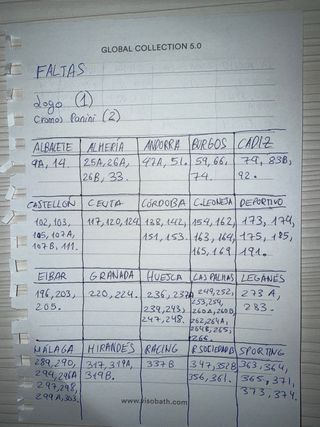 GLOBAL COLLECTION 5.0
FALTAS
Logo (1)
Cromos Panini (2)
ALBACETE ALMERIA ANDORRA BURGOS CADIZ
9A, 14. 25A, 26A, 47A, 51. 59, 66, 79, 83B,
26B, 33. 74. 92.
CASTELLÓN CEUTA CÓRDOBA C.LEONESA DEPORTIVO
102, 103, 117, 120, 124. 138, 142, 154, 162, 173, 174,
105, 107A, 151, 153. 163, 164, 175, 185,
107B, 111. 165, 169 191.
EIBAR GRANADA HUESCA LAS PALMAS LEGANÉS
196, 203, 220, 224. 236, 237A 249, 252, 273A,
205. 239, 243, 253, 254, 283.
247, 248. 260A, 260B,
262, 264A,
264B, 265,
266.
MÁLAGA MIRANDÉS RACING R.SOCIEDAD B SPORTING
289, 290, 317, 319A, 337B 347, 352B 363, 364,
294, 296A 319B. 356, 361. 365, 371,
297, 298, 373, 374.
299A, 303.
www.visobath.com